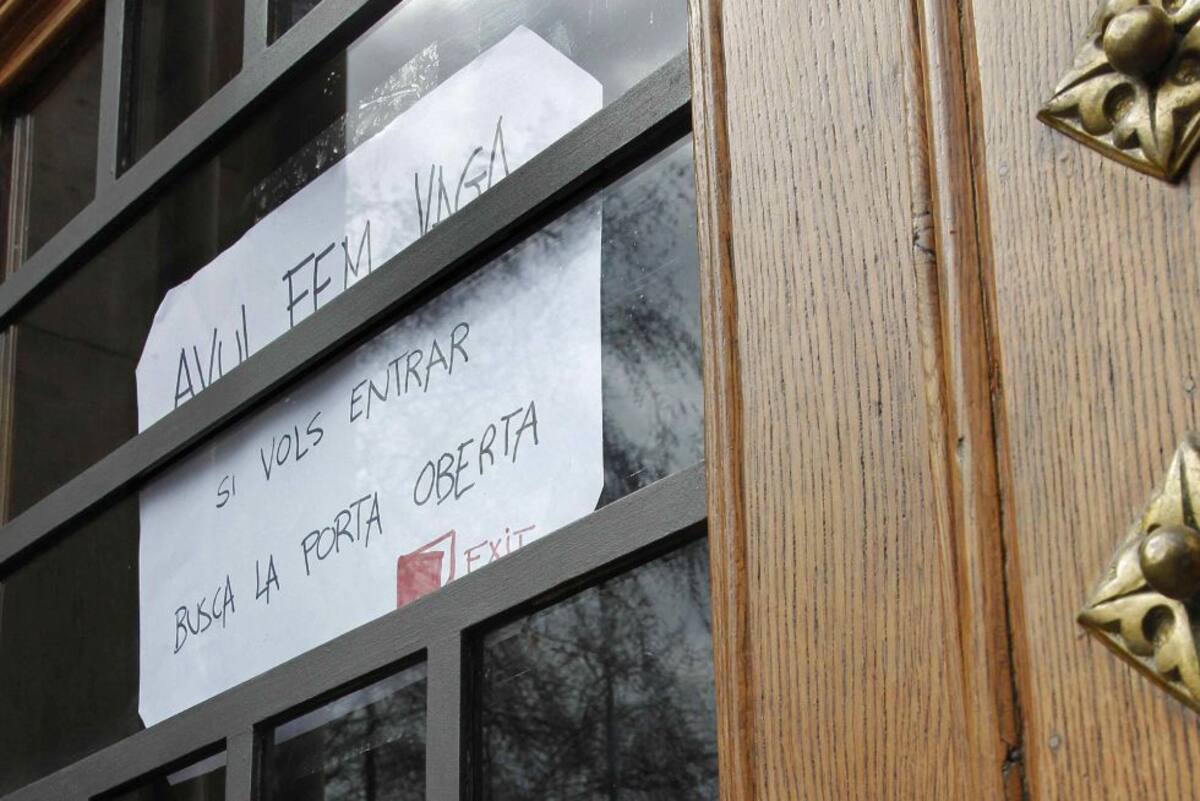 AVUI FEM VAGA
SI VOLS ENTRAR
BUSCA LA PORTA OBERTA
EXiT